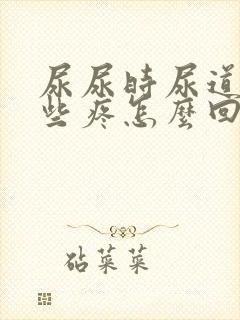 尿尿时尿道
些疼怎麼回
砧菜菜